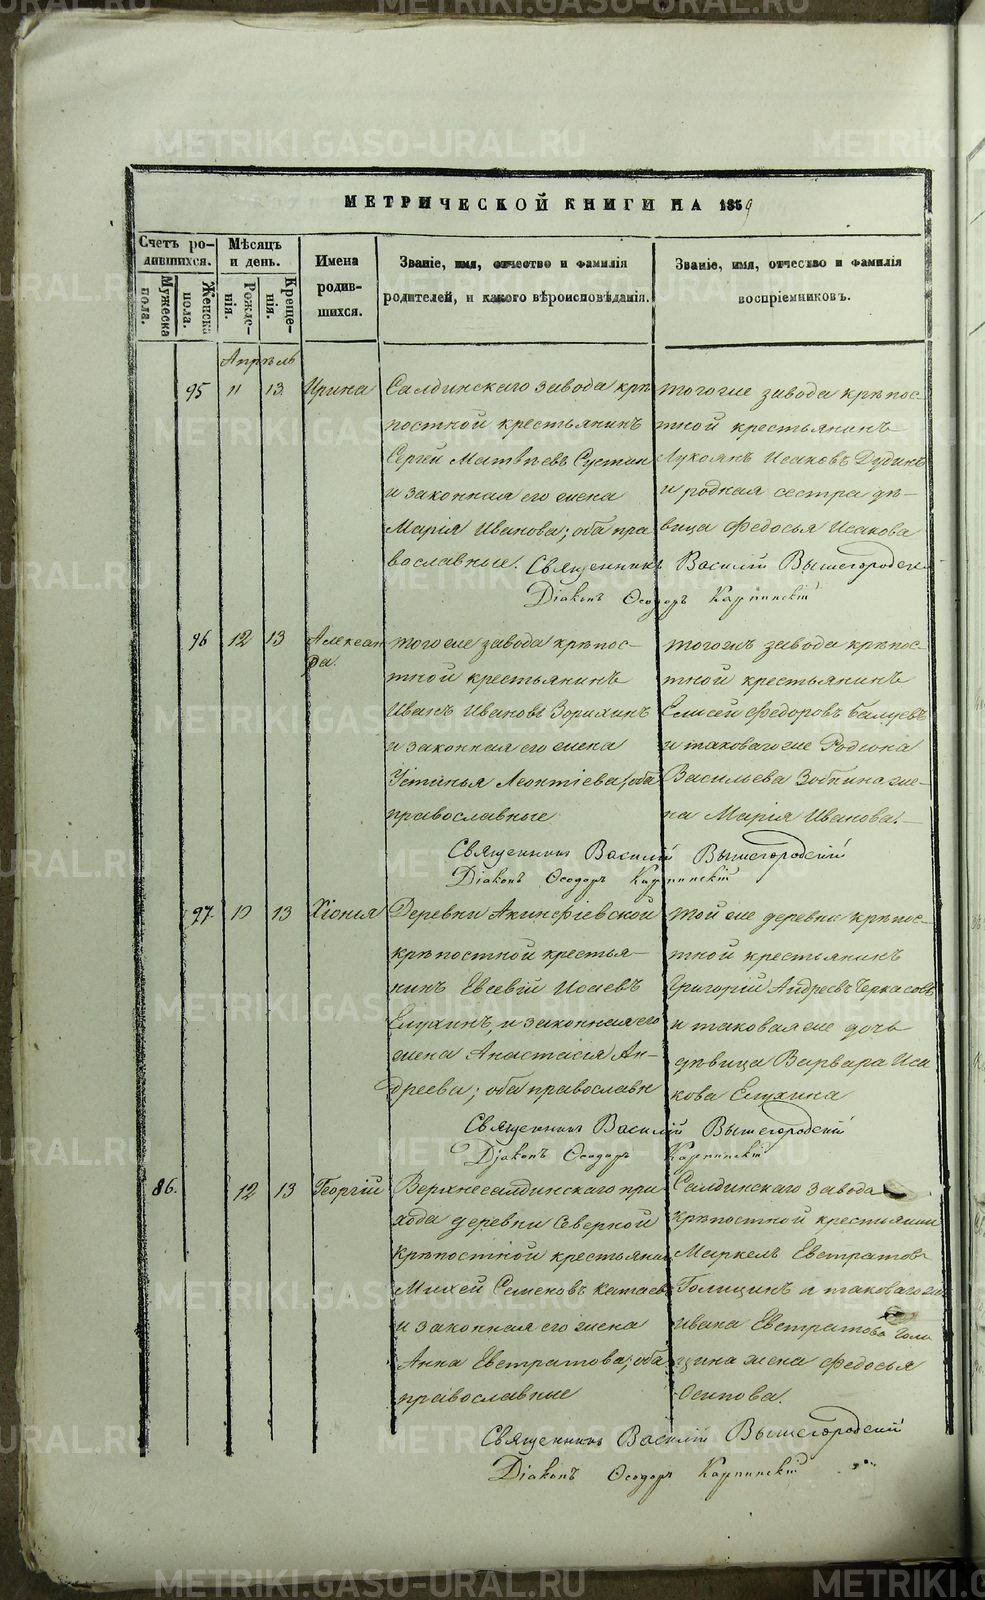 МЕТРИЧЕСКОЙ КНИГИ НА 1859
Счетъ родившихся.
Мѣсяцъ и день.
Имена родившихся.
Званіе, имя, отчество и фамилія родителей, и какого вѣроисповѣданія.
Званіе, имя, отчество и фамилія воспріемниковъ.
Мужеска пола.
Женска пола.
Рожденія.
Крещенія.
Апрѣль
95 11 13. Ирина
Салдинскаго завода крѣ
постной крестьянинъ
Сергей Матвѣевъ
и законная его жена
Марія Иванова; оба пра
вославные.
тогоже завода крѣпос-
тной крестьянинъ
Лукоянъ Исаковъ Дудинъ
и родная сестра дѣ-
вица Федосья Исакова
Священникъ Василій Вышегородскій
Діаконъ Ѳеодоръ Карпинскій
96 12 13 Алексан
ра.
тогоже завода крѣпос-
тной крестьянинъ
Иванъ Ивановъ Зорихинъ
и законная его жена
Устинья Леонтіева; оба
православные
тогожъ завода крѣпос-
тной крестьянинъ
Елисей Федоровъ Балуевъ
и таковагоже Родіона
Васильева Зобнина же-
на Марія Иванова.
Священникъ Василій Вышегородскій
Діаконъ Ѳеодоръ Карпинскій
97. 10 13 Хіонія
Деревни Акинфіевской
крѣпостной крестья-
нинъ Евсевій Исаевъ
Елухинъ, и законная его
жена Анастасія Ан-
дреева; оба православн
той же деревни крѣпос-
тной крестьянинъ
Григорій Андреевъ Черкасовъ
и таковая же дочь
дѣвица Варвара Иса
кова Елухина
Священникъ Василій Вышегородскій
Діаконъ Ѳеодоръ Карпинскій
86. 12 13 Георгій
Верхнесалдинскаго при
хода деревни Северной
крѣпостной крестьянин
Михей Семеновъ Катаевъ
и законная его жена
Анна Евстратова; оба
православные
Салдинскаго завода
крѣпостной крестьянин
Маркелъ Евстратовъ
Голицинъ и таковагоже
Ивана Евстратова Голи
цина жена Федосья
Осипова.
Священникъ Василій Вышегородскій
Діаконъ Ѳеодоръ Карпинскій
METRIKI.GASO-URAL.RU